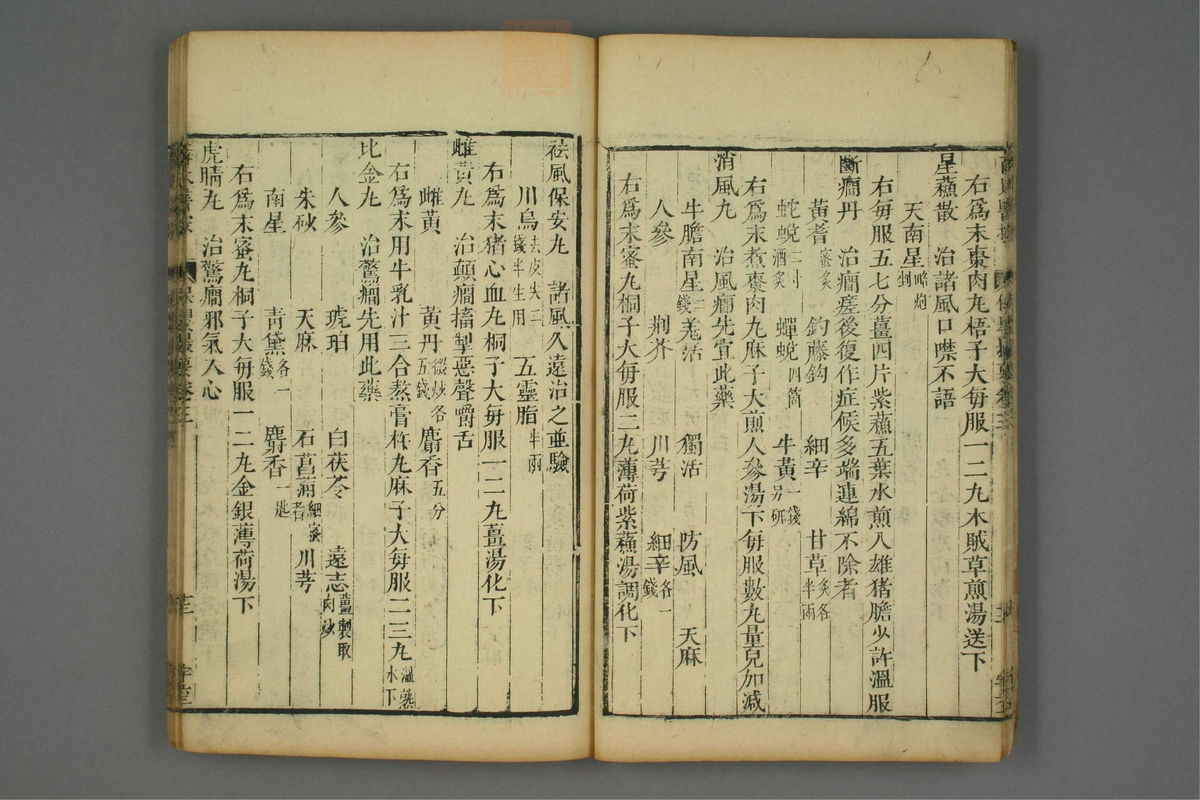 右爲末棗肉丸梧子大每服一二丸木賊草煎湯送下
星蘇散　治諸風口噤不語
天南星略炮剉
右每服五七分薑四片紫蘇五葉水煎入雄猪膽少許溫服
斷癎丹　治癎瘥後復作症候多端連綿不除者
黃耆蜜炙　釣藤鈎　細辛　甘草炙各半兩
蛇蛻二寸酒炙　蟬蛻四箇　牛黃一錢另研
右爲末煮棗肉丸麻子大煎人參湯下每服數丸量兒加減
消風丸　治風癎先宜此藥
牛膽南星二錢　羌活　獨活　防風　天麻
人參　荆芥　川芎　細辛各一錢
右爲末蜜丸桐子大每服二丸薄荷紫蘇湯調化下
祛風保安丸　諸風久遠治之亟驗
川烏去皮尖二錢半生用　五靈脂半兩
右爲末猪心血丸桐子大每服一二丸薑湯化下
雌黃丸　治顛癎搐掣惡聲嚼舌
雌黃　黃丹微炒各五錢　麝香五分
右爲末用牛乳汁三合熬膏杵丸麻子大每服二三丸溫熟水下
比金丸　治驚癎先用此藥
人參　琥珀　白茯苓　遠志薑製取肉炒
朱砂　天麻　石菖蒲細蜜者　川芎
南星　靑黛各一錢　麝香一匙
右爲末蜜丸桐子大每服一二丸金銀薄荷湯下
虎睛丸　治驚癎邪氣入心